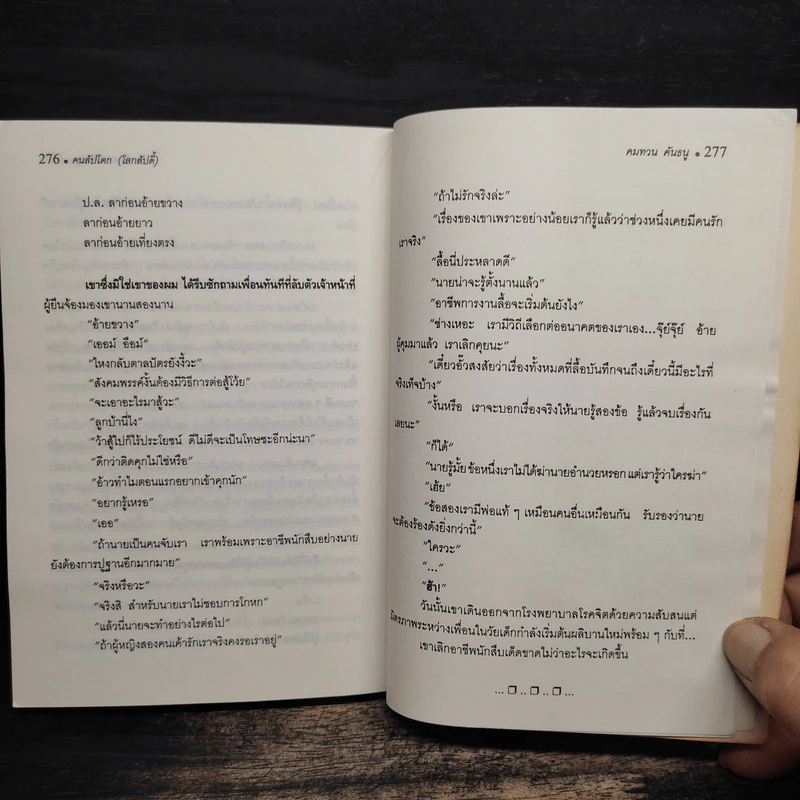 276 • คนสัปโดก (โลกสัปดี้)
ป.ล. ลาก่อนอ้ายขวาง
ลาก่อนอ้ายยาว
ลาก่อนอ้ายเที่ยงตรง
เขาซึ่งมิใช่เขาของผม ได้รีบซักถามเพื่อนทันทีที่ลับตัวเจ้าหน้าที่
ผู้ยืนจ้องมองเขานานสองนาน
“อ้ายขวาง”
“เออม์ อืออ์”
“ไหงกลับตาลปัตรยังงี้วะ”
“สังคมพรรค์งั้นต้องมีวิธีการต่อสู้โว้ย”
“จะเอาอะไรมาสู้วะ”
“ลูกบ้านี่ไง”
“ว้าสู้ไปก็ไร้ประโยชน์ ดีไม่ดีจะเป็นโทษซะอีกน่ะนา”
“ดีกว่าติดคุกไม่ใช่หรือ”
“อ้าวทำไมตอนแรกอยากเข้าคุกนัก”
“อยากรู้เหรอ”
“เออ”
“ถ้านายเป็นคนจับเรา เราพร้อมเพราะอาชีพนักสืบอย่างนาย
ยังต้องการปูฐานอีกมากมาย”
“จริงหรือวะ”
“จริงสิ สำหรับนายเราไม่ชอบการโกหก”
“แล้วนี่นายจะทำอย่างไรต่อไป”
“ถ้าผู้หญิงสองคนเค้ารักเราจริงคงรอเราอยู่”
คมทวน คันธนู • 277
“ถ้าไม่รักจริงล่ะ”
“เรื่องของเขาเพราะอย่างน้อยเราก็รู้แล้วว่าช่วงหนึ่งเคยมีคนรัก
เราจริง”
“ลื้อนี่ประหลาดดี”
“นายน่าจะรู้ตั้งนานแล้ว”
“อาชีพการงานลื้อจะเริ่มต้นยังไง”
“ช่างเหอะ เรามีวิถีเลือกต่ออนาคตของเราเอง...จุ๊ย์จุ๊ย์ อ้าย
ผู้คุมมาแล้ว เราเลิกคุยนะ”
“เดี๋ยวอั๊วสงสัยว่าเรื่องทั้งหมดที่ลื้อบันทึกจนถึงเดี๋ยวนี้มีอะไรที่
จริงเท็จบ้าง”
“งั้นหรือ เราจะบอกเรื่องจริงให้นายรู้สองข้อ รู้แล้วจบเรื่องกัน
เลยนะ”
“ก็ได้”
“นายรู้มั้ย ข้อหนึ่งเราไม่ได้ฆ่านายอำนวยหรอก แต่เรารู้ว่าใครฆ่า”
“เฮ้ย”
“ข้อสองเรามีพ่อแท้ ๆ เหมือนคนอื่นเหมือนกัน รับรองว่านาย
จะต้องร้องดังยิ่งกว่านี้”
“ใครวะ”
“...”
“ฮ้า!”
วันนั้นเขาเดินออกจากโรงพยาบาลโรคจิตด้วยความสับสนแต่
มิตรภาพระหว่างเพื่อนในวัยเด็กกำลังเริ่มต้นผลิบานใหม่พร้อม ๆ กับที่...
เขาเลิกอาชีพนักสืบเด็ดขาดไม่ว่าอะไรจะเกิดขึ้น
... ❒ .. ❒ .. ❒ ...